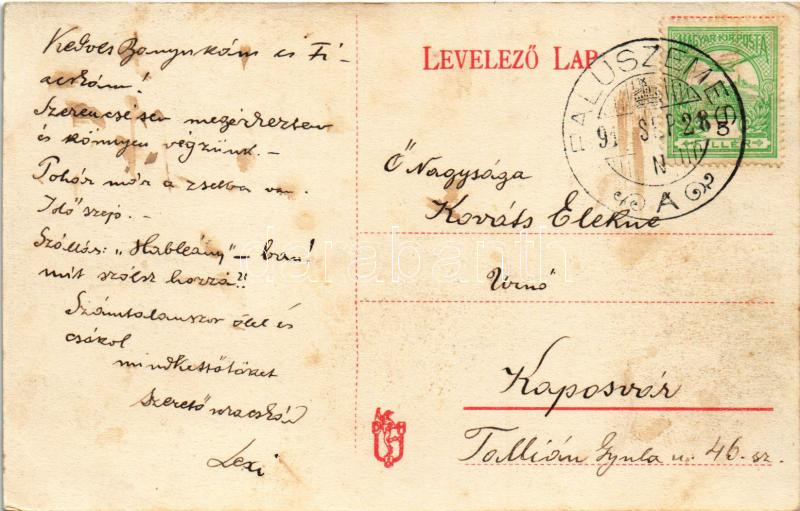 Kedves Banyukám és Fi-
acskám!
Szerencsésen megérkeztem
és könnyen végzünk. -
Pohár már a zsebben van.
Idő szép. -
Szállás: „Hableány"-ban!
mit szólsz hozzá?!
Számtalanszor ölel és
csókol
mindkettőtöket
szerető
Lexi
LEVELEZŐ LAP
MAGYAR KIR. POSTA
FILLÉR
5
BALUSZEMES
91 SEP 28
N
A
Ő Nagysága
Kováts Elekné
Úrnő
Kaposvár
Tallián Gyula u. 46. sz.
darabanth